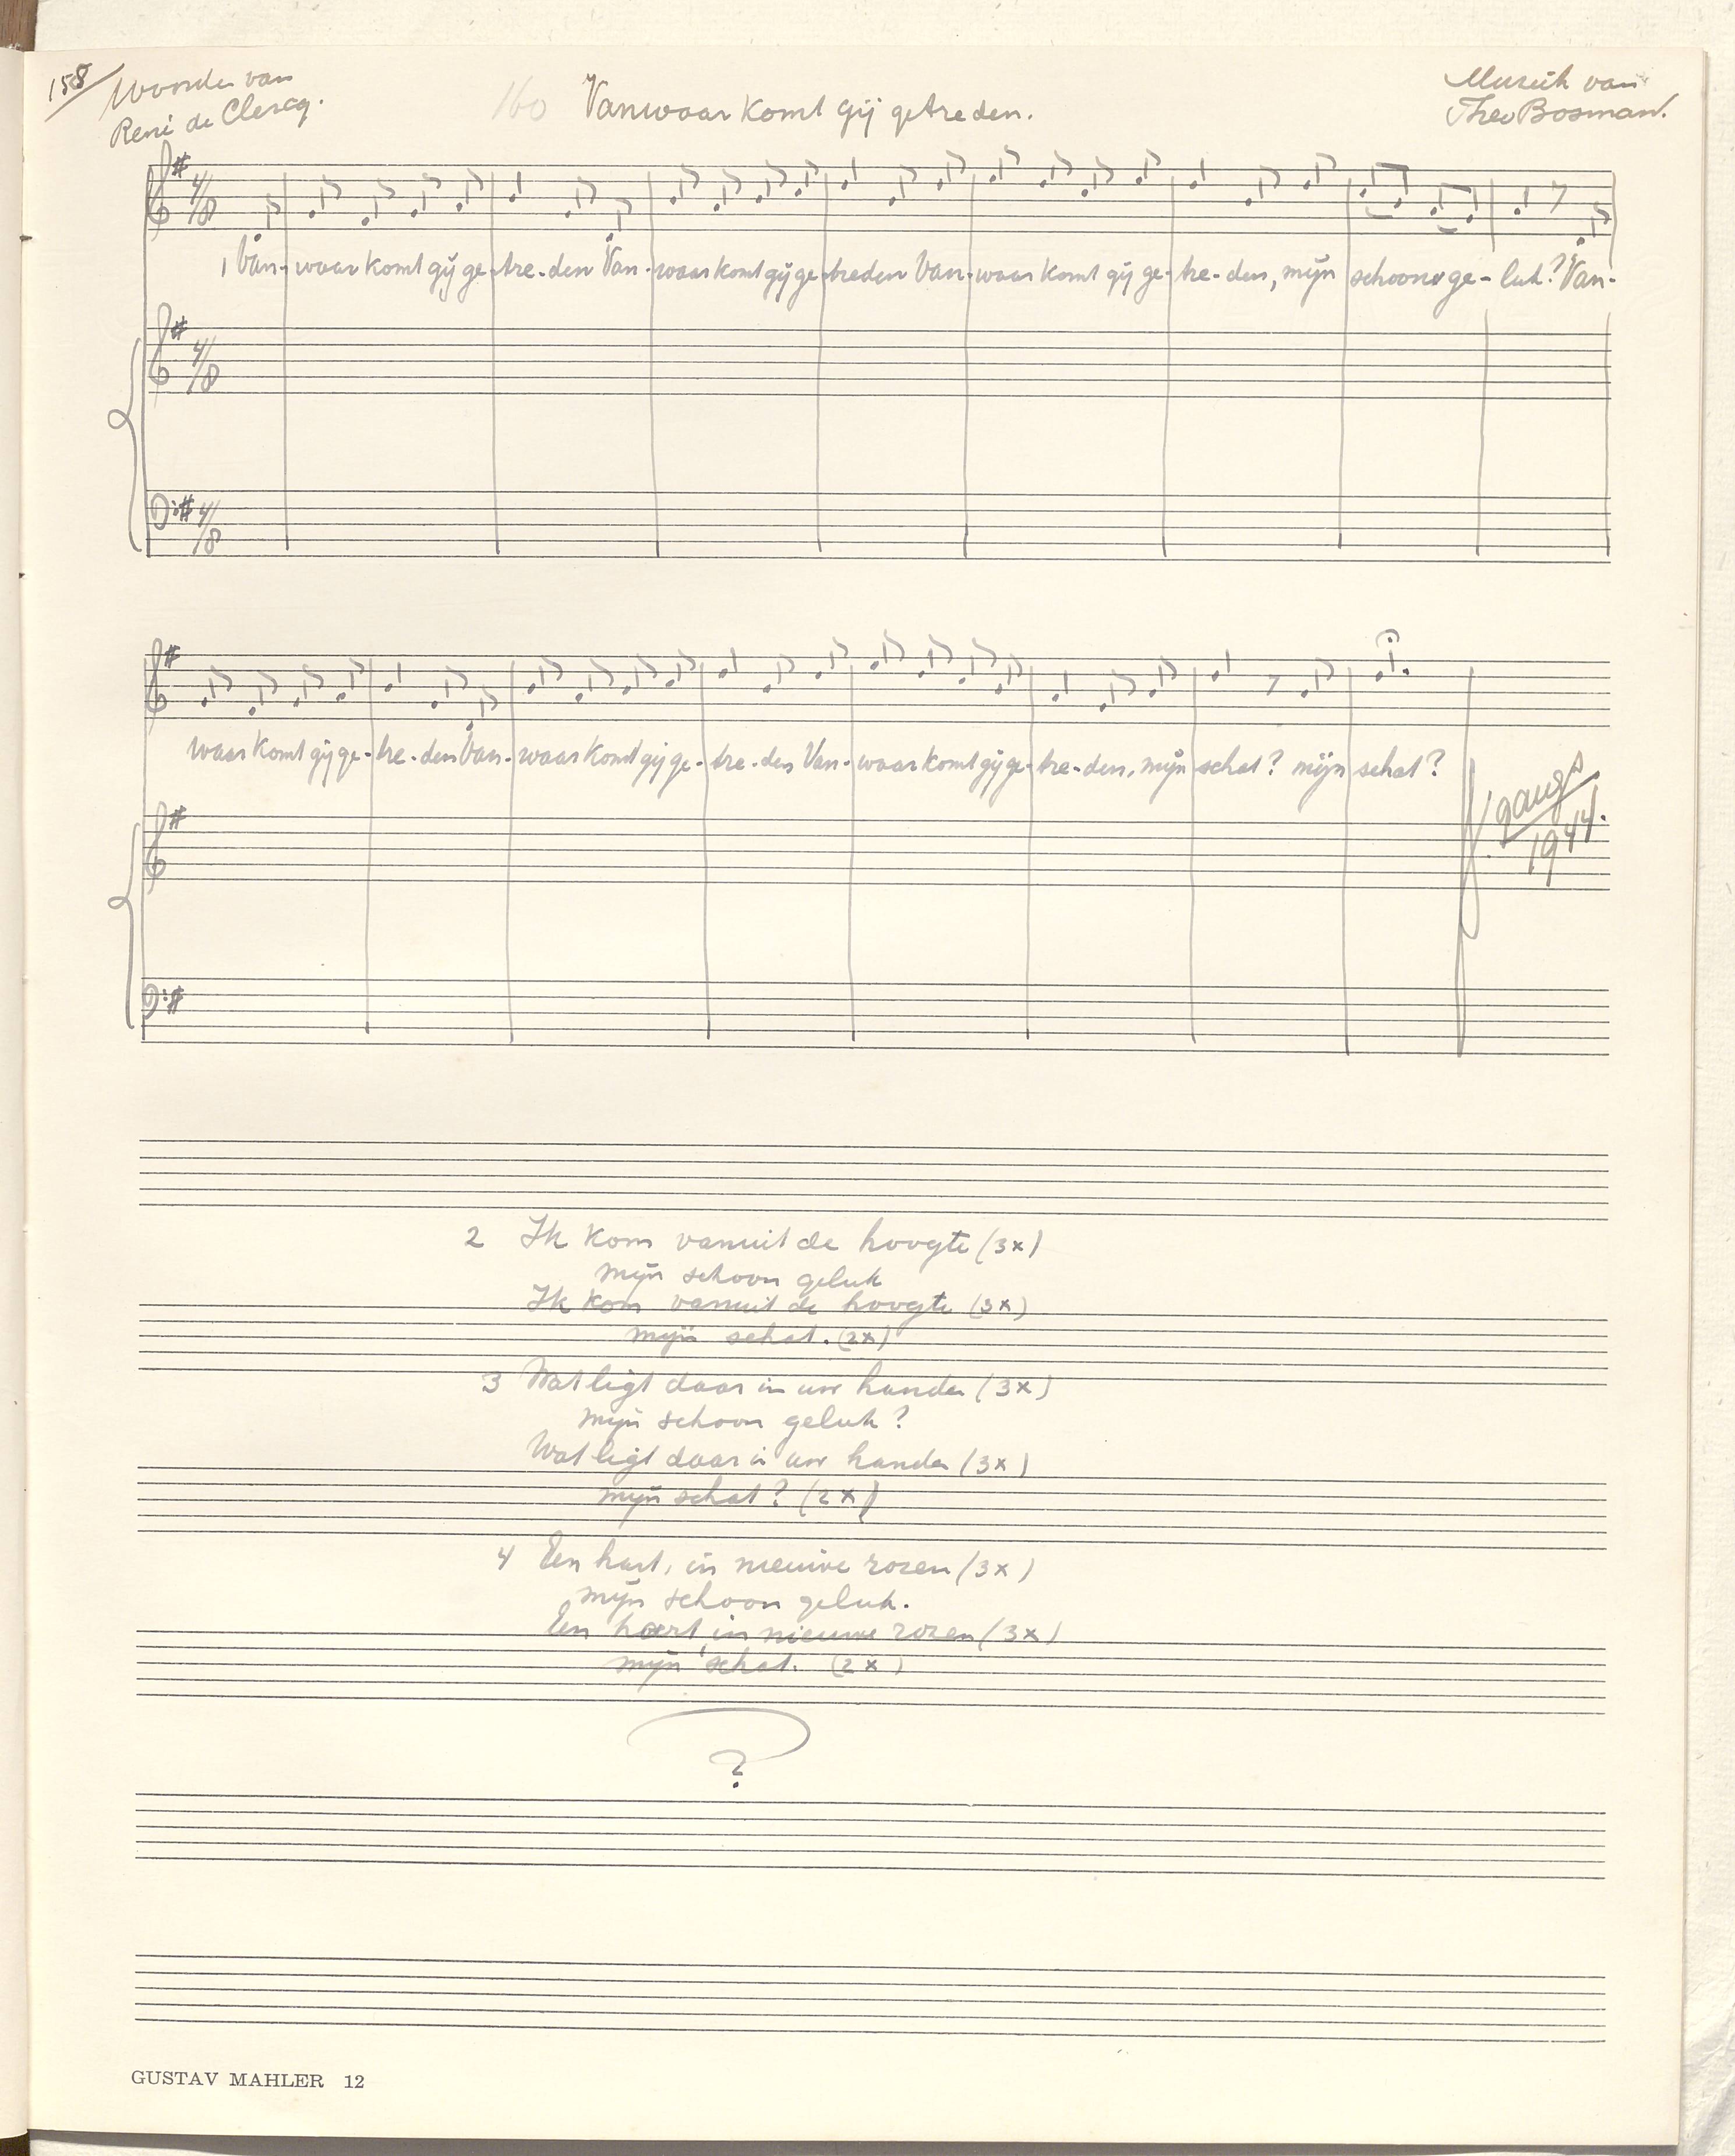 158
Woorden van
René de Clercq.
160 Vanwaar komt gij getreden.
Muziek van
Theo Bosman.
4/8
1 Van- waar komt gij ge- tre-den Van- waar komt gij ge- treden Van- waar komt gij ge- tre-den, mijn schoon ge- luk? Van-
4/8
4/8
waar komt gij ge- tre-den Van- waar komt gij ge- tre-den Van- waar komt gij ge- tre-den, mijn schat? mijn schat?
9 aug.
1944.
2 Ik kom vanuit de hoogte (3x)
mijn schoon geluk
Ik kom vanuit de hoogte (3x)
mijn schat. (2x)
3 Wat ligt daar in uw handen (3x)
mijn schoon geluk?
Wat ligt daar in uw handen (3x)
mijn schat? (2x)
4 Een hart, in nieuwe rozen (3x)
mijn schoon geluk.
Een hart, in nieuwe rozen (3x)
mijn schat. (2x)
?
GUSTAV MAHLER 12